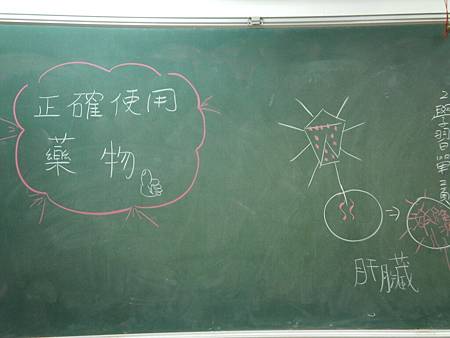 正確使用
藥物
肝臟
2.學習單